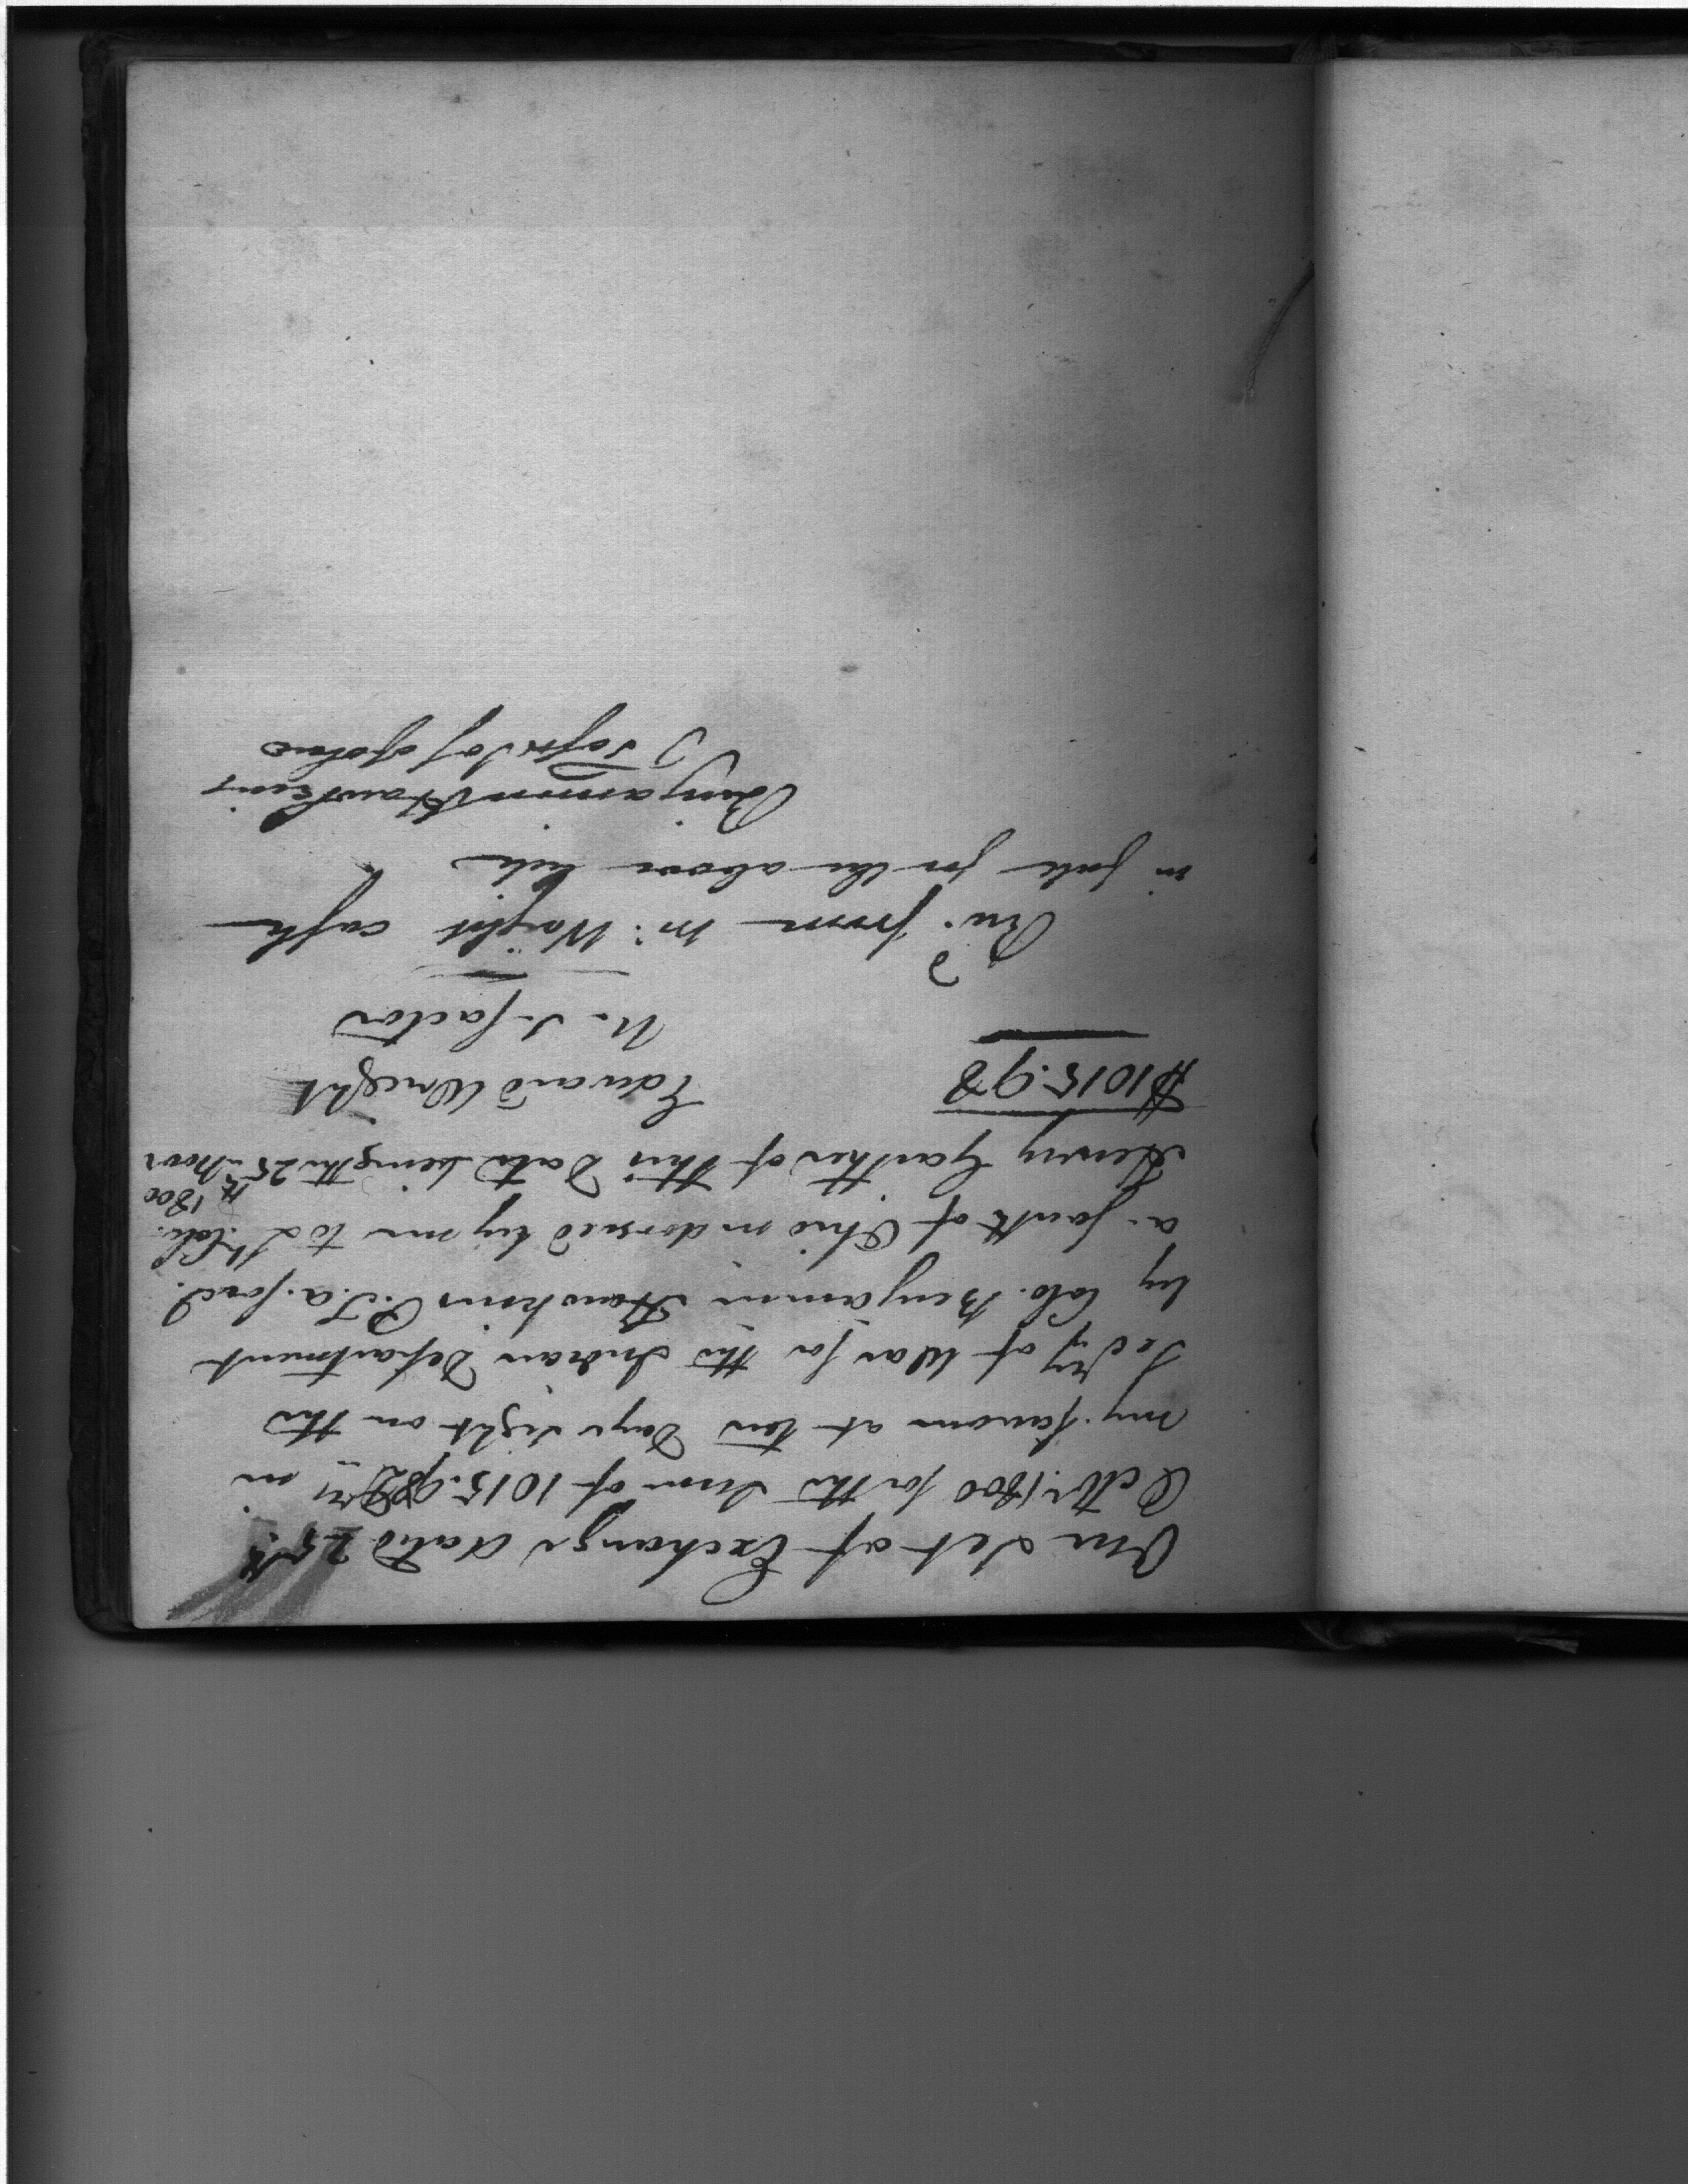 One Set of Exchange dated 25th
Octbr. 1800 for the Sum of 1015.98 in
my favour at ten Days sight on the
Secry of War for the Indian Department
by Colo. Benjamin Hawkins P.T.A. ford.
a. fault of this indorsed by me to Lt. Col.
Henry Gaither of this Date being the 25th Novr 1800
$1015.98 Edward Wright
U. S. factor
Recd. from Mr. Wright cash
in full for the above bill
Benjamin Hawkins